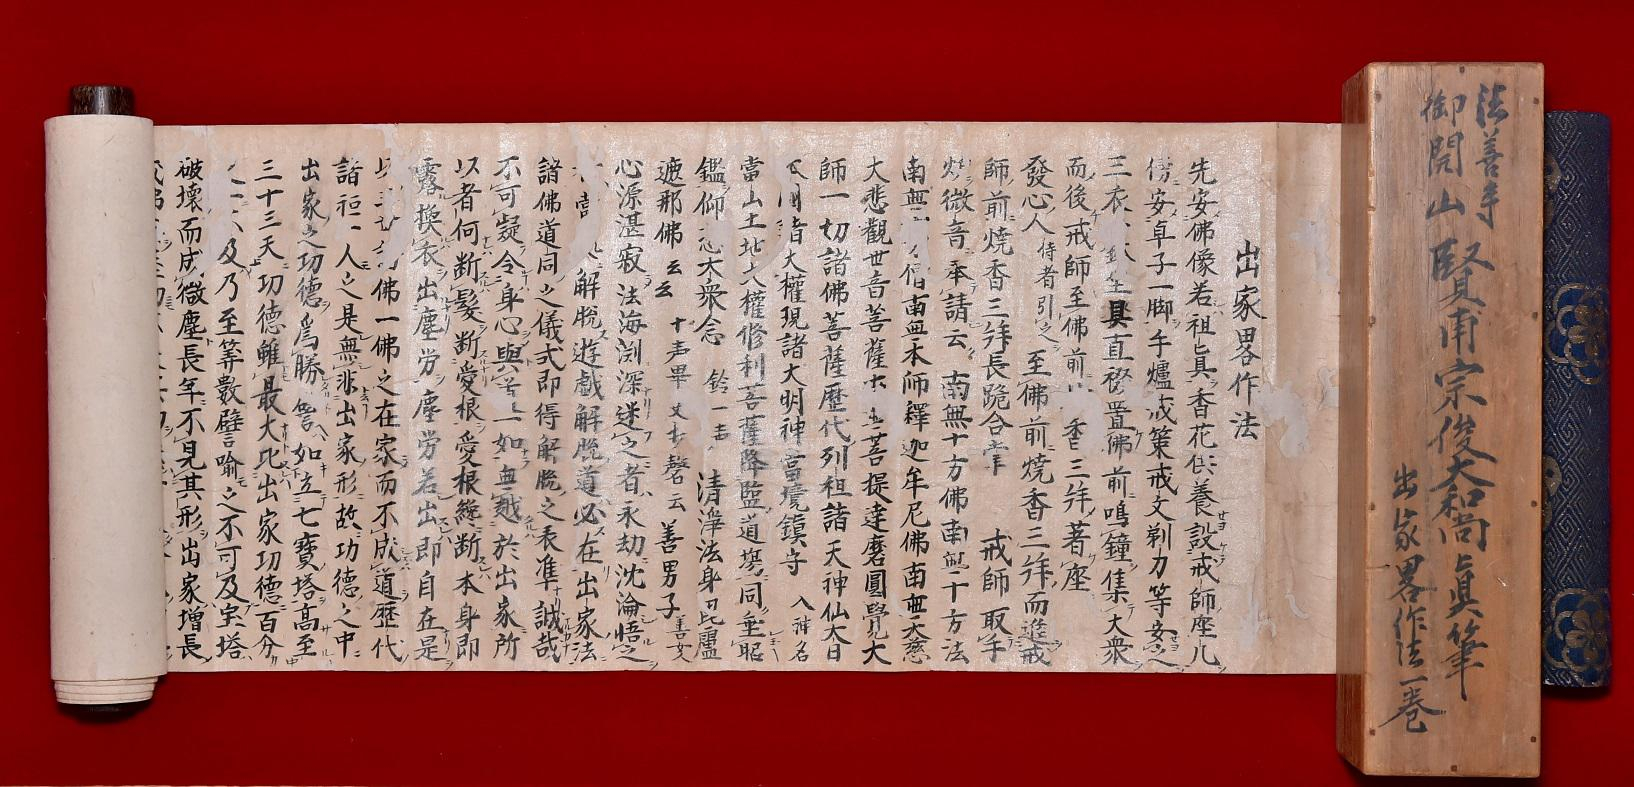 法善寺
御開山賢甫宗俊大和尚眞筆
出家畧作法一巻
出家畧作法
先安佛像若祖眞香花供養設戒師座几
傍安卓子一脚手爐戒策戒文剃刀等安之
三衣 具直裰置佛前鳴鐘集大衆
而後戒師至佛前 香三拜著座
發心人侍者引之至佛前燒香三拜而進戒
師前燒香三拜長跪合掌 戒師取手
爐微音奉請云南無十方佛南無十方法
南無 僧南無本師釋迦牟尼佛南無大慈
大悲觀世音菩薩 菩提達磨圓覺大
師一切諸佛菩薩歷代列祖諸天神仙大日
大權現諸大明神當境鎮守 入神名
當山土地大權修利菩薩降臨道場同垂昭
鑑仰 大衆念 鈴一 清淨法身毘盧
遮那佛云云 十声畢 磬云善男子善女
心源湛寂法海渕深迷之者永劫沈淪悟之
解脫遊戲解脫道必在出家法
諸佛道同之儀式即得解脫之表準誠哉
不可凝令身心與 如無越於出家所
以者何断髮断愛根愛根纔断本身即
露換衣出塵労塵労若出即自在是
以 佛一佛之在家而不成道歷代
諸祖一人之是無非出家形故功德之中
出家之功德爲勝 如立七寶塔高至
三十三天功德雖最大比出家功德百分
之一 及乃至筭數譬喻之不可及宝塔
破壞而成微塵長年不見其形出家增長